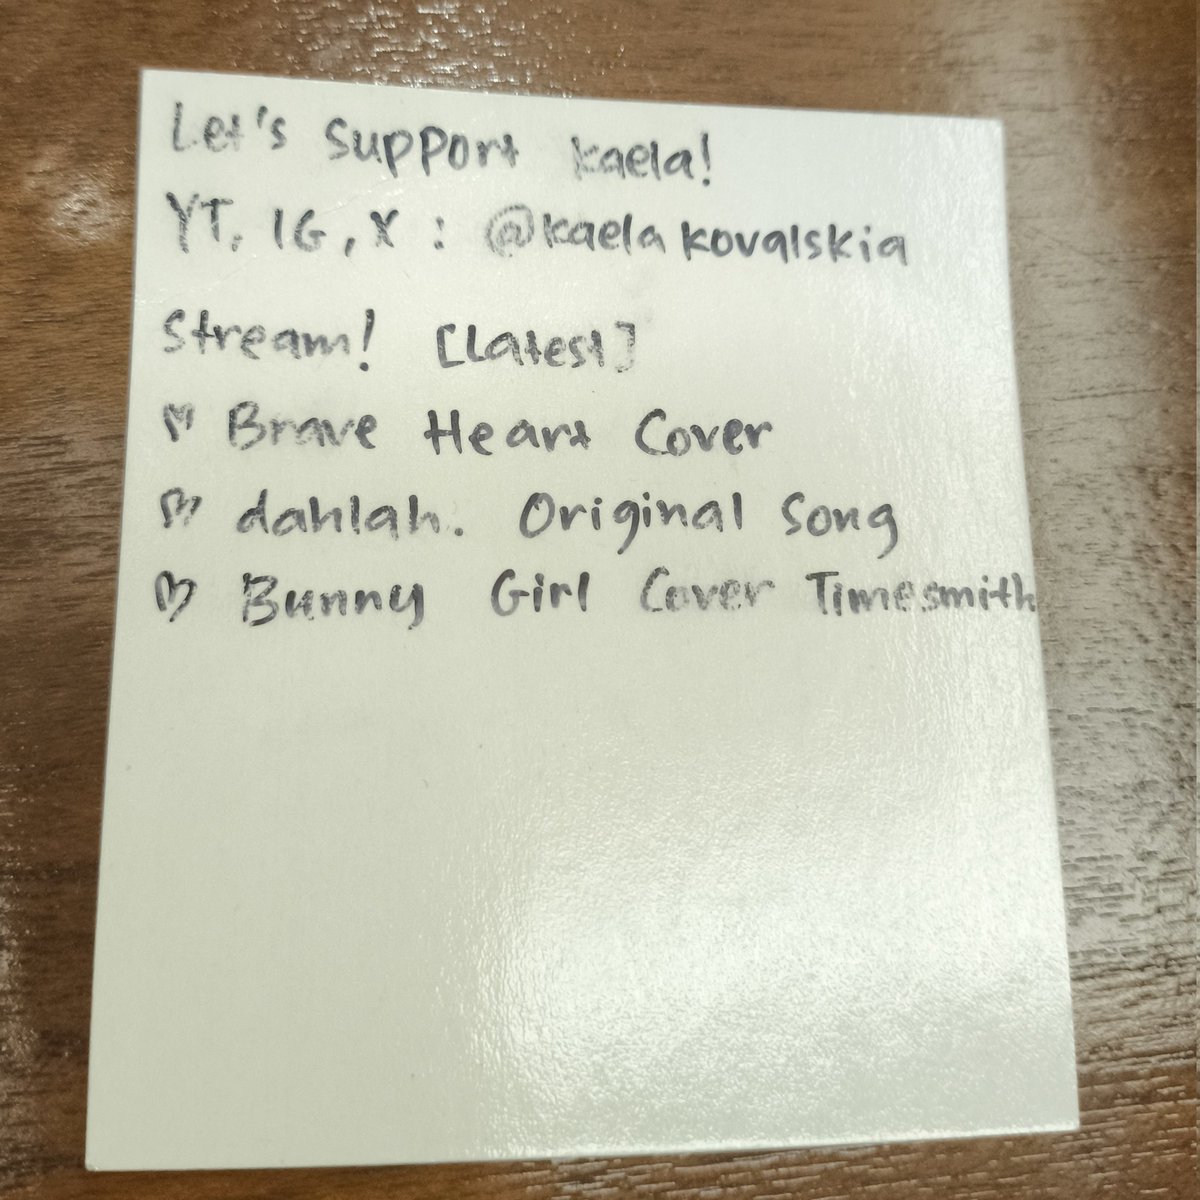 Let's support kaela!
YT, IG, X : @kaelakovalskia
Stream! [Latest]
♡ Brave Heart Cover
♡ dahlah. Original Song
♡ Bunny Girl Cover Timesmith